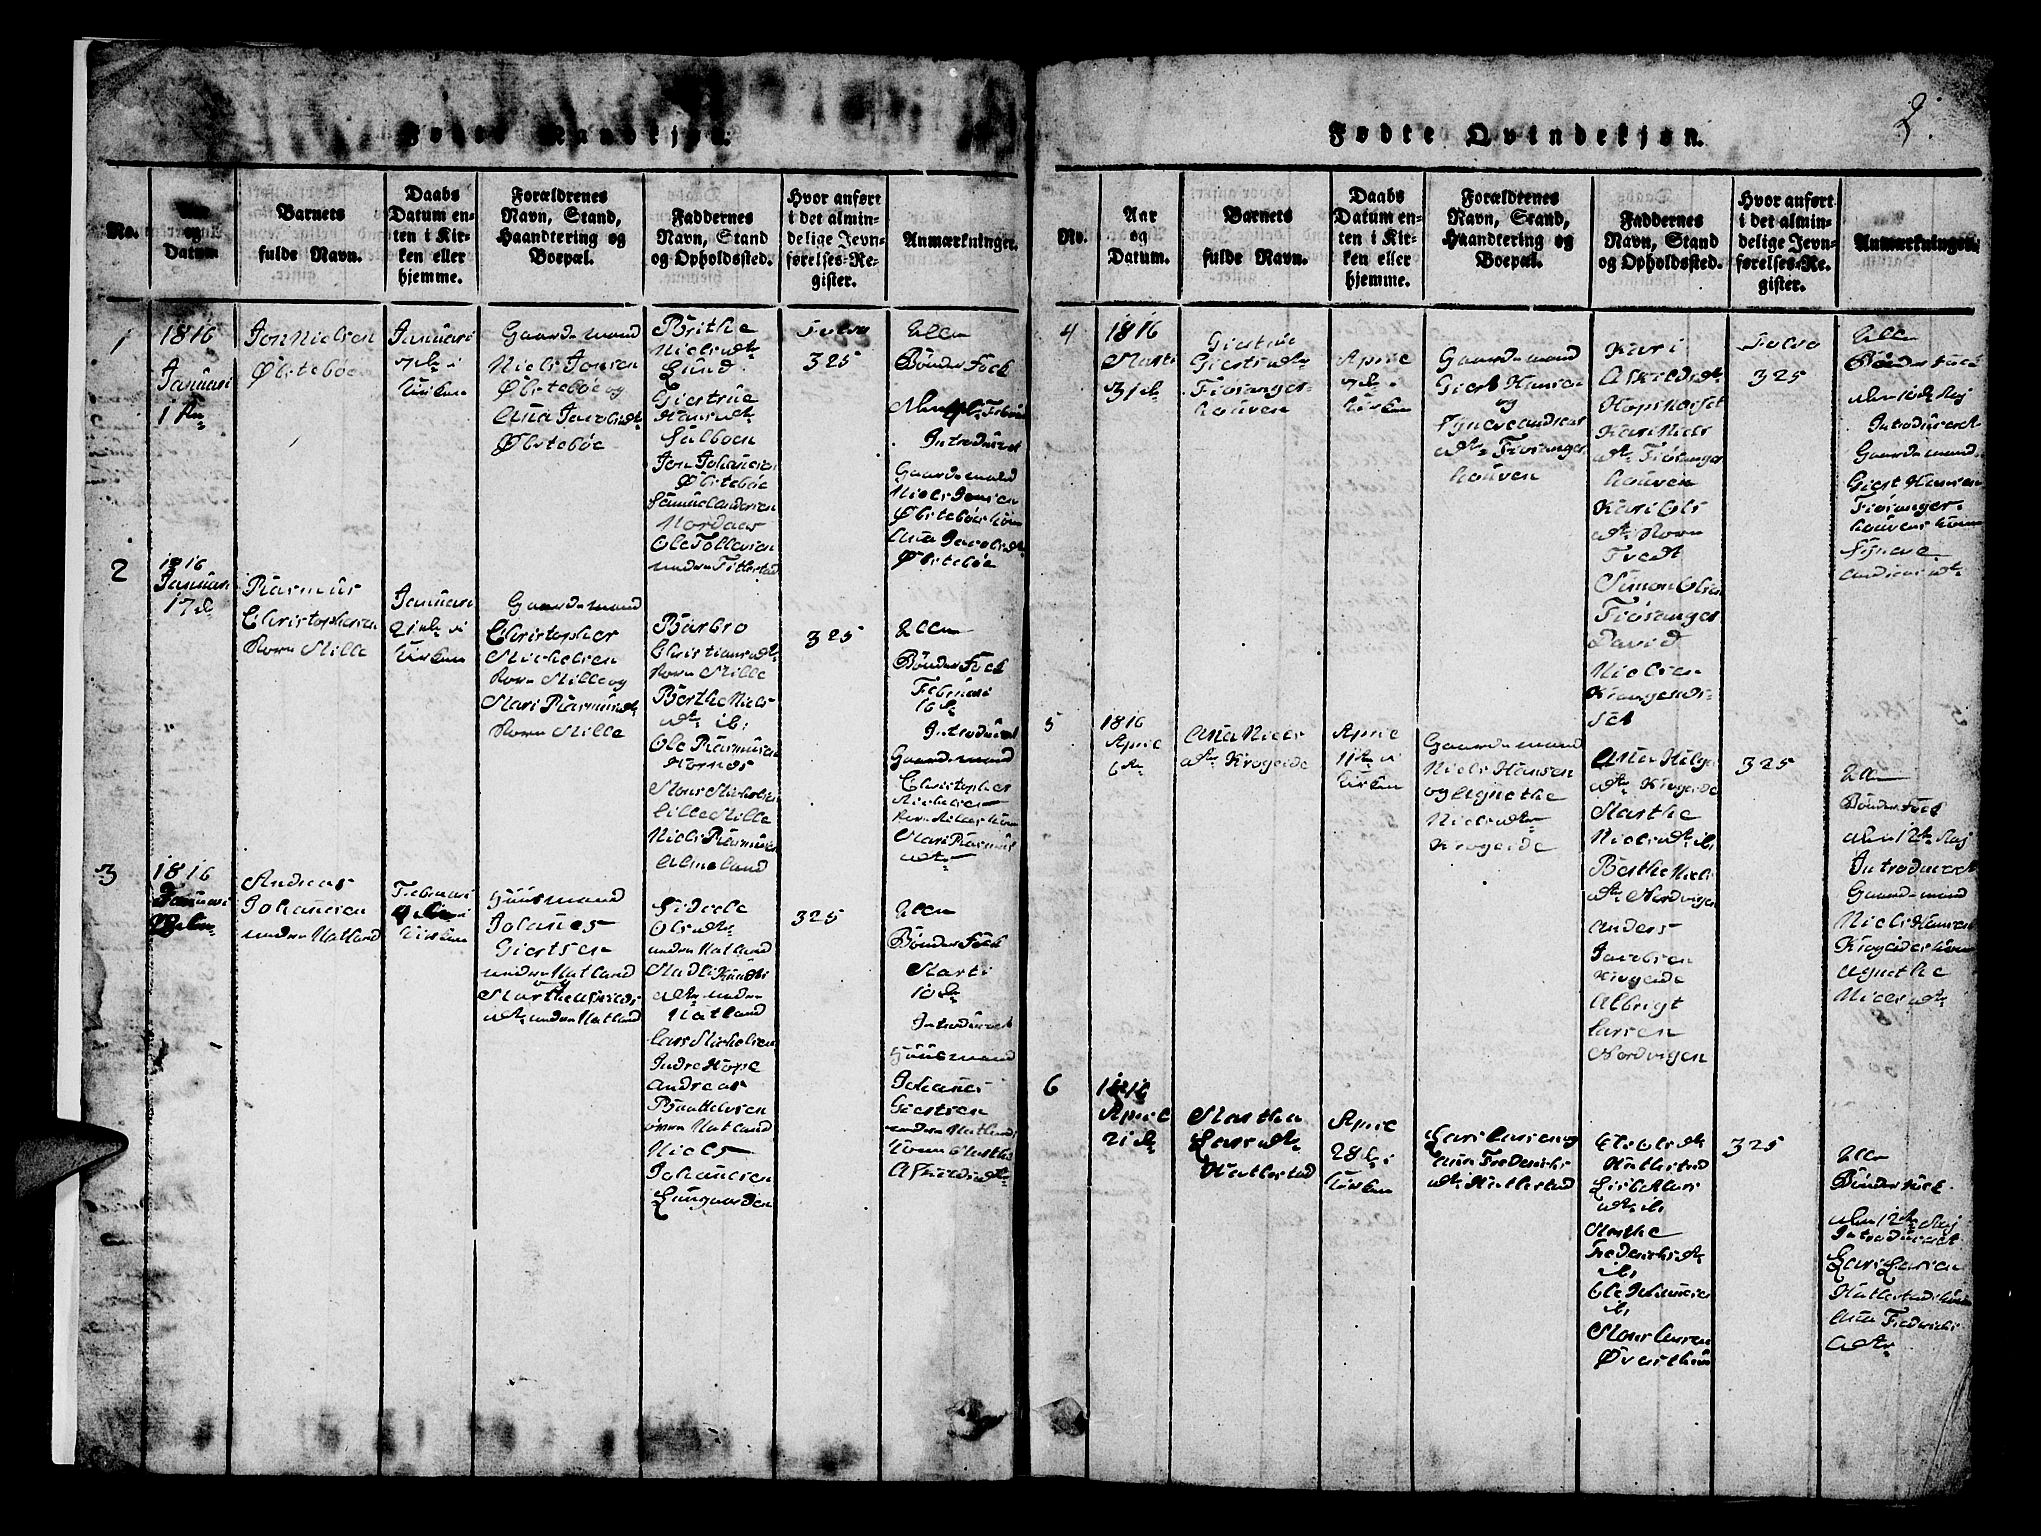 2.
Fødte Mandkjøn.
No.
Aar
og
Datum
Barnets
fulde Navn.
Daabs
Datum en-
ten i Kir-
ken eller
hjemme.
Forældrenes
Navn, Stand,
Haandtering og
Boepæl.
Faddernes
Navn, Stand
og Opholdssted.
Hvor anført
i det almin-
delige Jevn-
førelses-Re-
gister.
Anmærkninger.
1
1816
Januari
1
Jon Nielsen
Øbstebøe
Januari
7de i
Kirken
Gaardsmand
Niels Jonsen
Øbstebøe og
Ana Jacobsdtr
Øbstebøe
Brithe
Nielsdtr
Lund
Giertrue
Hansdtr
Salboen
Jon Johanesen
Øbstebøe
Samuel Andersen
Nordaas
Ole Tollevsen
Folio
325
Ellen
Bønder Folk
Introduceret
Gaardsmand
Niels Jonsen
Øbstebøes kone
Ana Jacobsdtr
Øbstebøe
2
1816
Januari
17de
Rasmus
Christophersen
Store Milde
Januari
21de i
Kirken
Gaardsmand
Christopher
Michelsen
Store Milde og
Mari Rasmusdtr
Store Milde
Barbro
Christiansdtr
Store Milde
Berthe Niels
dtr ib:
Ole Rasmusen
Hornes
Mons Michelsen
Lille Milde
Niels Rasmusen
Almeland
325
Ellen
Bønder Folk
Februari
16de
Introduceret
Gaardsmand
Christopher
Michelsen
Store Mildes kone
Mari Rasmus
dtr
3
1816
Januari
Andreas
Johanesen
under Natland
Februari
i
Kirken
Huusmand
Johanes
Giertsen
under Natland
og
Marthe
dtr under Natland
Sidsele
Olsdtr
under Natland
Madli Knuds
dtr under
Natland
Lars Michelsen
Indre Hope
Andreas
øvre Natland
Niels
Johanesen
Lungaarden
325
Ellen
Bønder Folk
Marti
10de
Introduceret
Huusmand
Johanes
Giertsen
under Natlands
kone Marthe
Fødte Qvindekjøn.
No.
Aar
og
Datum.
Barnets
fulde Navn.
Daabs
Datum en-
ten i Kir-
ken eller
hjemme.
Forældrenes
Navn, Stand,
Haandtering og
Boepæl.
Faddernes
Navn, Stand
og Opholdssted.
Hvor anført
i det almin-
delige Jevn-
førelses-Re-
gister.
Anmærkninger.
4
1816
Marti
31de
Giertrue
Giertsdtr
Fiøsanger-
houven
April
7de i
Kirken
Gaardsmand
Giert Hansen
og
Synneve Andreas
dtr Fiøsanger
houven
Kari
Askildsdtr
Hopsholset
Kari Niels
dtr Fiøsanger
houven
Kari Ols
dtr Store
Tvedt
Simon Olsen
Fiøsanger
David
Nielsen
Folio
325
Ellen
Bønder Folk
den 10de Maj
Introduceret
Gaardsmand
Giert Hansen
Fiøsanger-
houvens kone
Synneve
Andreasdtr
5
1816
April
6de
Ana Niels
dtr Krogeide
April
11te i
Kirken
Gaardsmand
Niels Hansen
og Agnethe
Nielsdtr
Krogeide
Ana Helge
dtr Krogeide
Marthe
Nielsdtr ib:
Berthe Niels
dtr Nordvigen
Anders
Jacobsen
Krogeide
Albrigt
Larsen
Nordvigen
325
Ellen
Bønder Folk
den 12te Maj
Introduceret
Gaardsmand
Niels Hansen
Krogeides kone
Agnethe
Nielsdtr
6
1816
April
21de
Martha
Larsdtr
Hatlestad
April
28de i
Kirken
Lars Larsen og
Ana Frederichs
dtr Hatlestad
Hatlestad
Lisbet Lars
dtr ib:
Marthe
Frederichsdtr
ib:
Ole Johanesen
ib:
Mons Larsen
325
Ellen
Bønder Folk
den 12te Maj
Introduceret
Lars Larsen
Hatlestads kone
Ana Frederichs
dtr